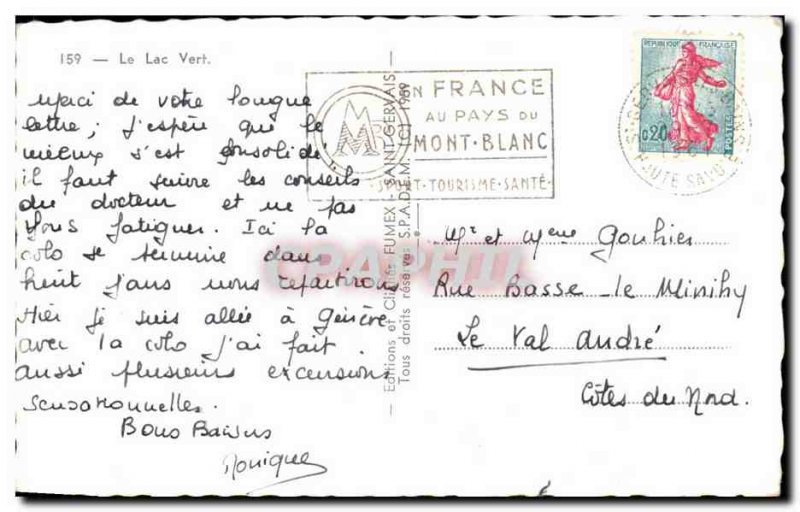 159 — Le Lac Vert.
Merci de votre longue
lettre; j'espère que le
mieux s'est consolidé
il faut suivre les conseils
du docteur et ne pas
vous fatiguer. Ici la
colo se termine dans
huit jours nous repartirons
Hier je suis allée à Genève
avec la colo j'ai fait
aussi plusieurs excursions
sensationnelles.
Bons Baisers
Monique
Editions et Clichés FUMEX - SAINT-GERVAIS
Tous droits réservés S.P.A.D.E.M. (C) 1959
EN FRANCE
AU PAYS DU
MONT-BLANC
SPORT - TOURISME - SANTÉ
REPUBLIQUE FRANÇAISE
0,20
POSTES
HAUTE SAVOIE
Mr et Mme Gouhier
Rue Basse-le Minihy
Le Val André
Côtes du Nord.
CPAPHIL